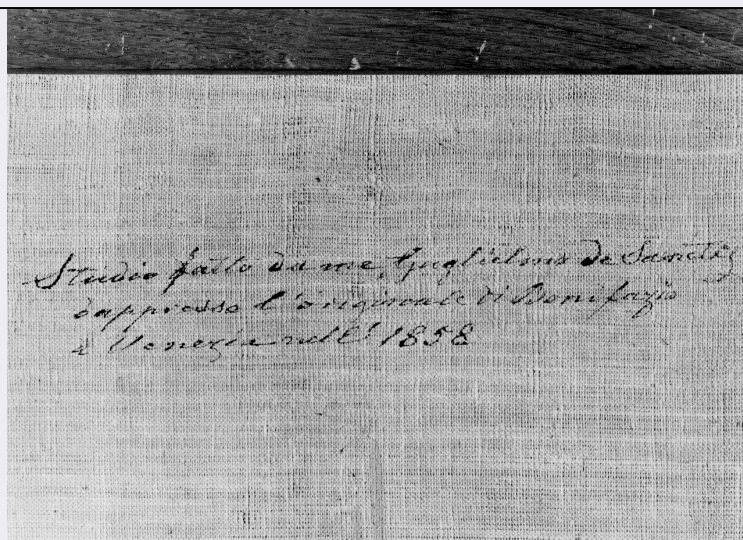 Studio fatto da me, Guglielmo de Sanctis
dappresso l'originale di Bonifazio
a Venezia nell' 1858